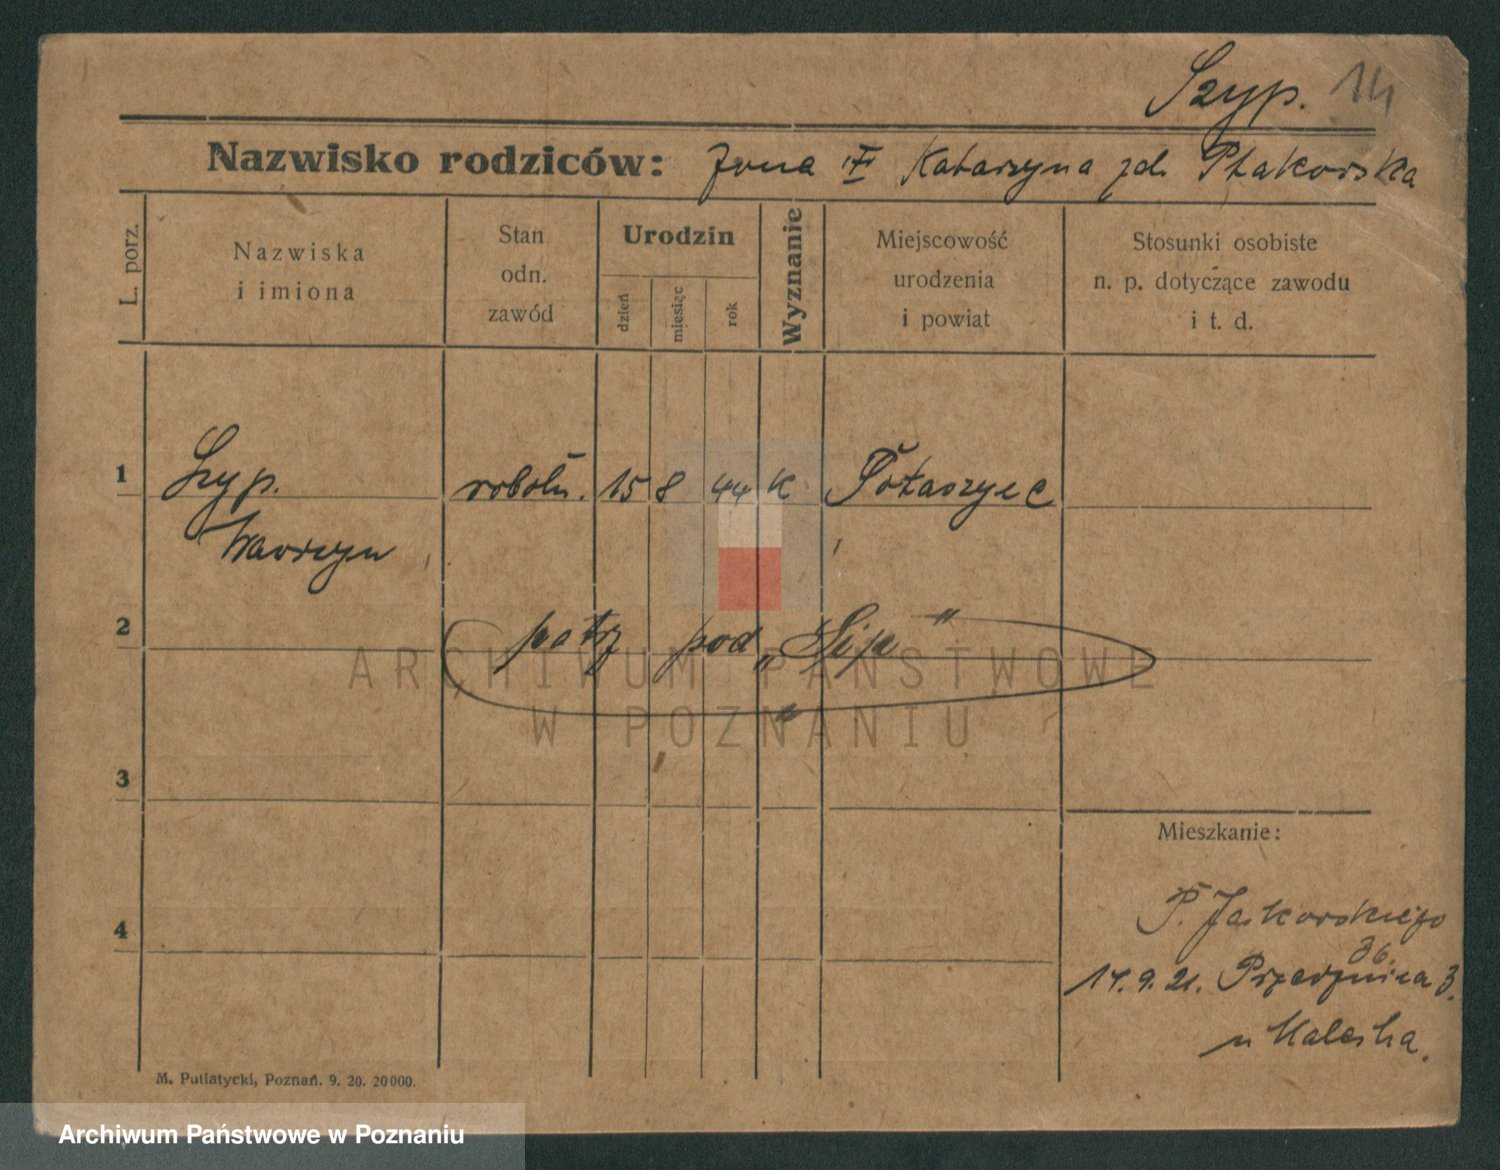 Szyp. 14
Nazwisko rodziców: Żona II Katarzyna zd. Ptakowska
L. porz.
Nazwiska
i imiona
Stan
odn.
zawód
Urodzin
dzień
miesiąc
rok
Wyznanie
Miejscowość
urodzenia
i powiat
Stosunki osobiste
n. p. dotyczące zawodu
i t. d.
1 Szyp. robotn. 15 8 44 K
Wawrzyn
2 patrz pod „Sip"
ARCHIWUM PAŃSTWOWE
W POZNANIU
3
Mieszkanie:
P. Jackowskiego
36.
4
14. 9. 21. 3.
u
M. Putiatycki, Poznań. 9. 20. 20000.
Archiwum Państwowe w Poznaniu